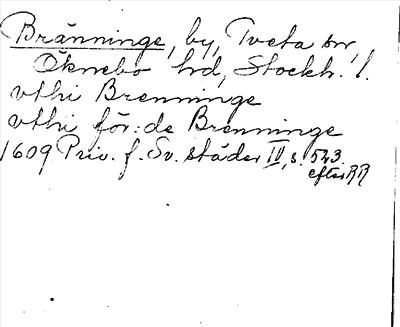 Bränninge, by, Tveta sn,
Öknebo hd, Stockh. l.
vthi Brenninge
vthi för:de Brenninge
1609 Priv. f. Sv. städer III, s. 523.
efter RR